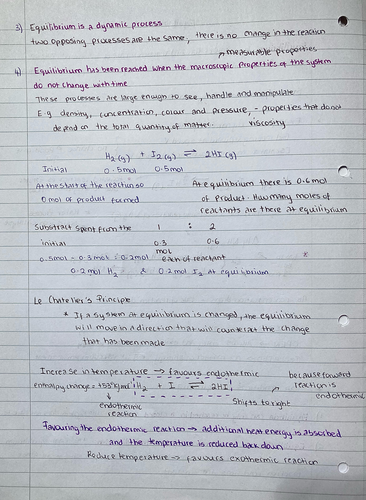 3) Equilibrium is a dynamic process
two opposing processes are the same, there is no change in the reaction
measurable properties
4) Equilibrium has been reached when the macroscopic properties of the system
do not change with time
These processes are large enough to see, handle and manipulate
E.g density, concentration, colour and pressure, - properties that do not
depend on the total quantity of matter. viscosity
H₂(g) + I₂(g) ⇌ 2HI(g)
Initial 0.5mol 0.5mol
At the start of the reaction so At equilibrium there is 0.6mol
0 mol of product formed of product. How many moles of
reactants are there at equilibrium
Substract spent from the 1 : 2
initial 0.3 0.6
mol
0.5mol - 0.3mol = 0.2mol each of reactant
0.2mol H₂ & 0.2mol I₂ at equilibrium
Le Chatelier's Principle
* If a system at equilibrium is changed, the equilibrium
will move in a direction that will counteract the change
that has been made
Increase in temperature → favours endothermic because forward
enthalpy change = +53kJmol H₂ + I ⇌ 2HI reaction is
endothermic
↓ Shifts to right
endothermic
reaction
Favouring the endothermic reaction → additional heat energy is absorbed
and the temperature is reduced back down
Reduce temperature → favours exothermic reaction